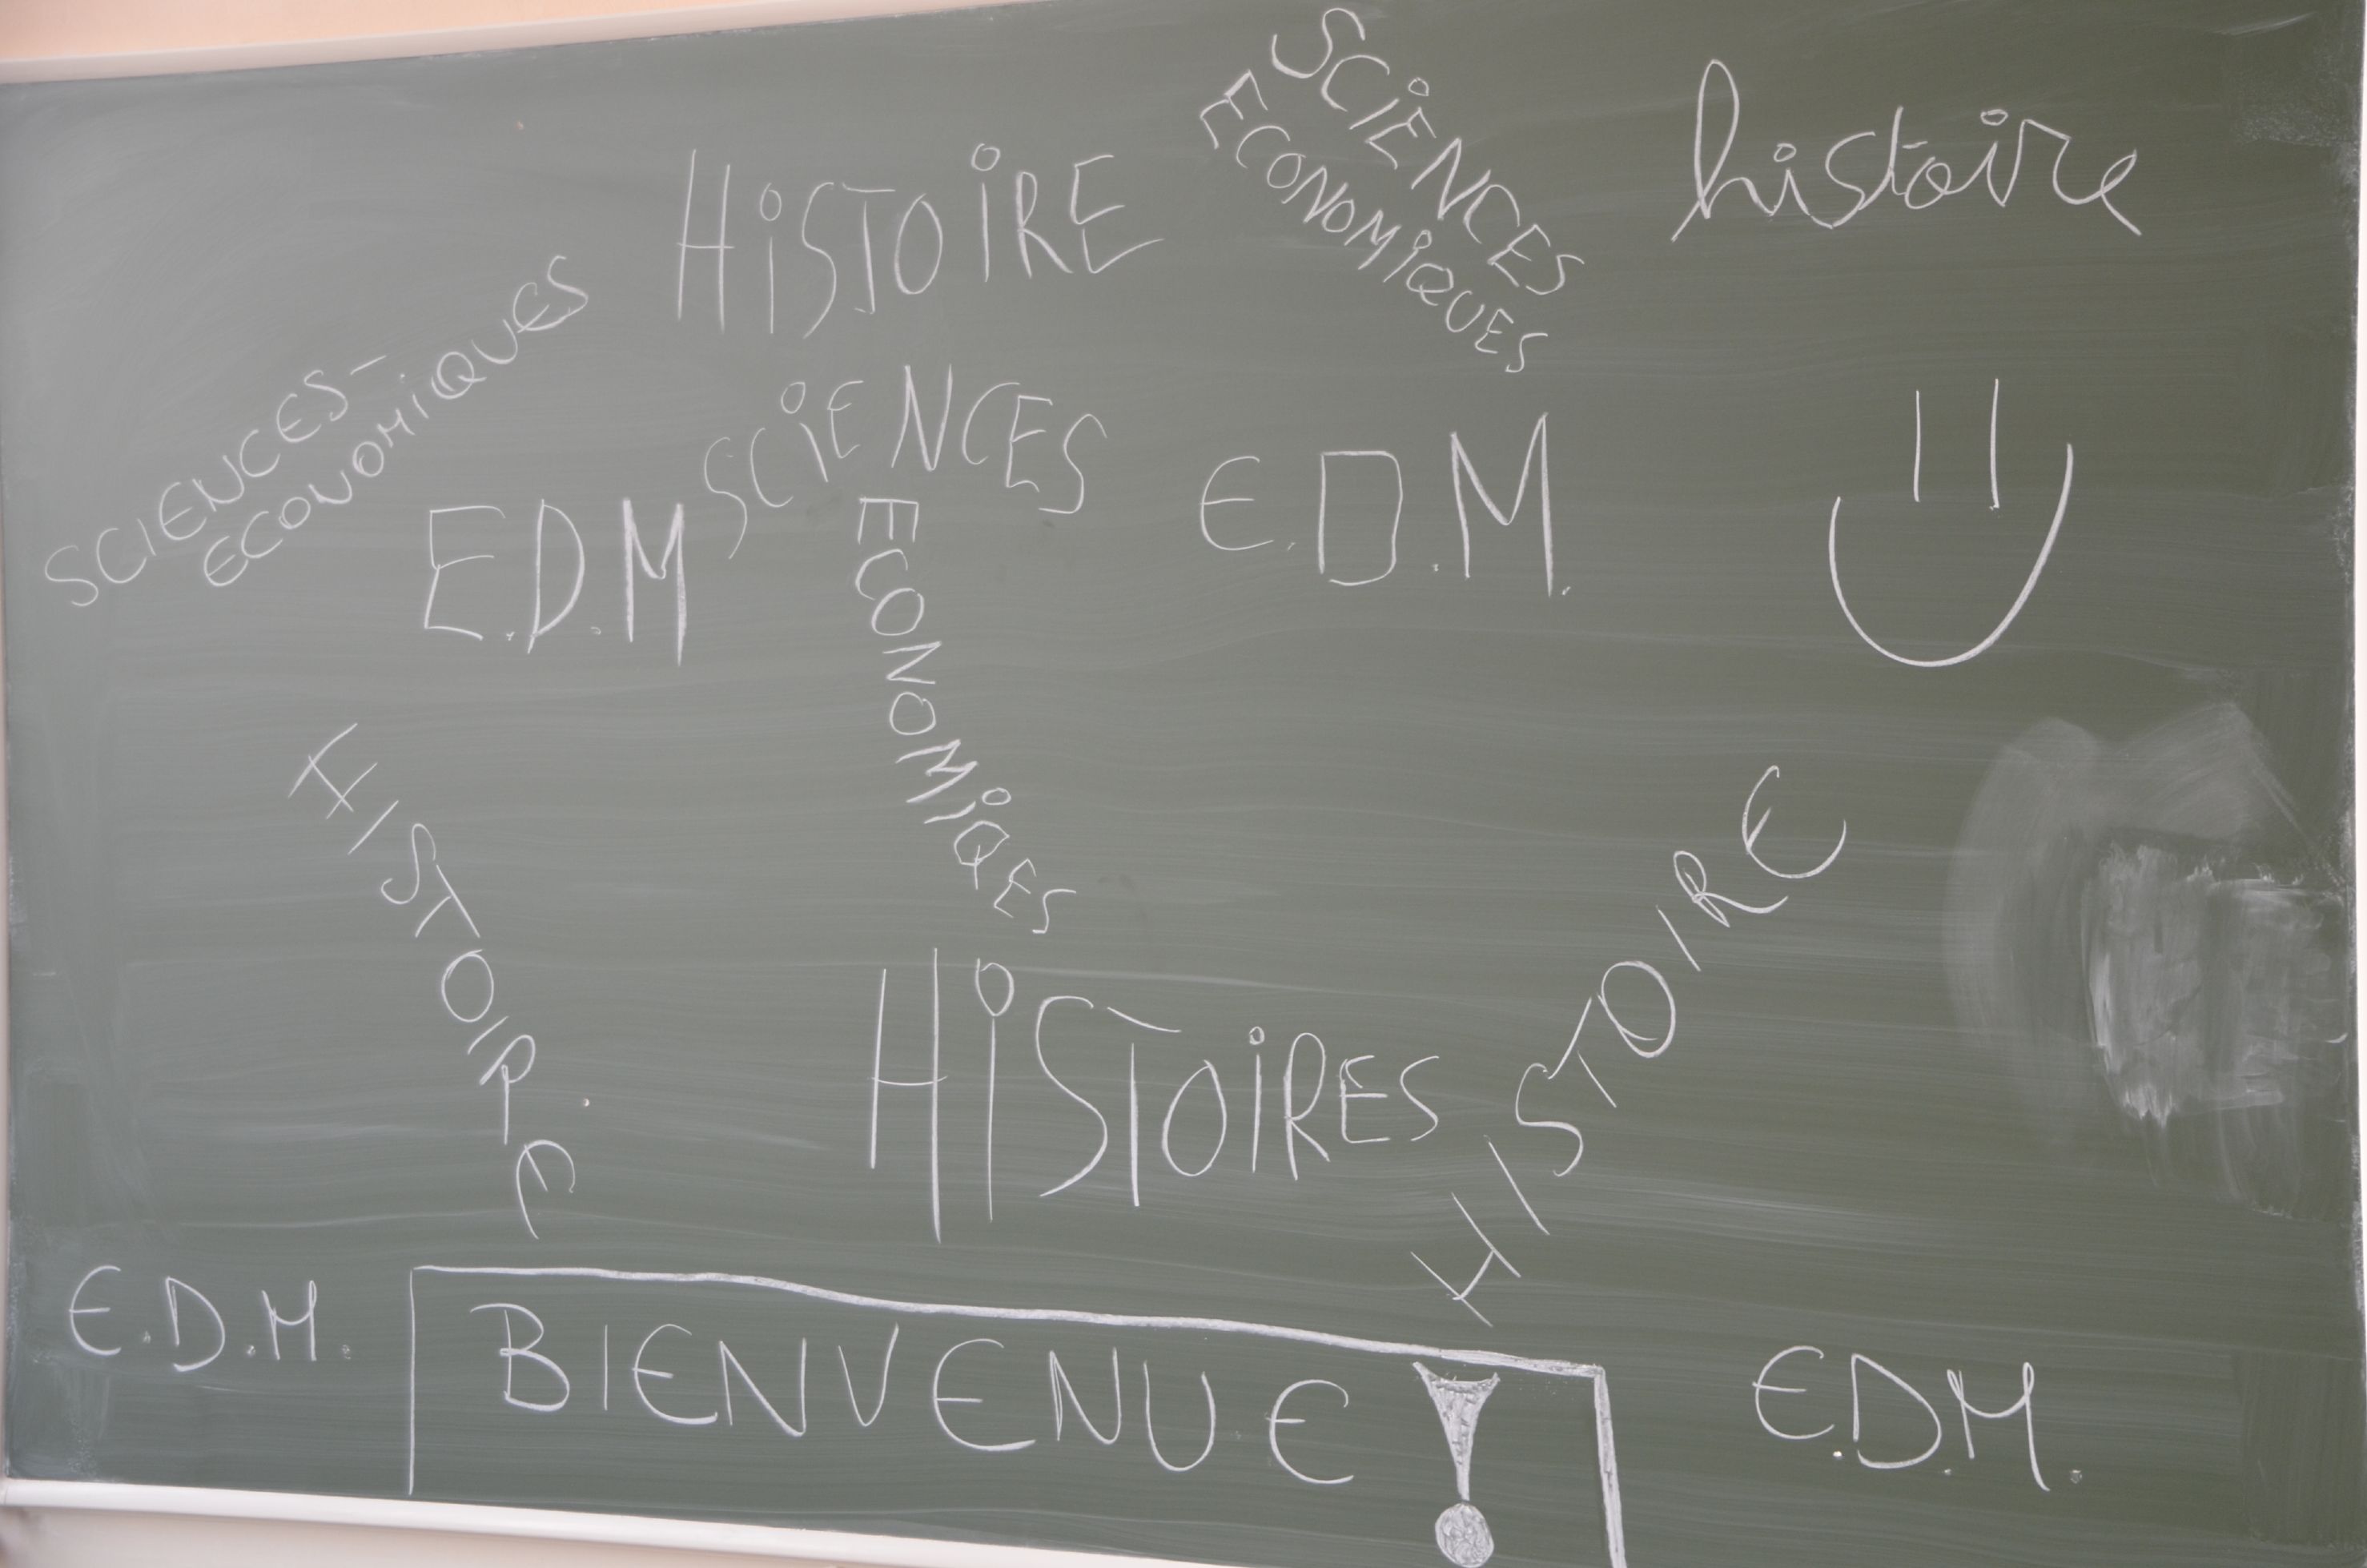 SCIENCES
ECONOMIQUES
histoire
HiSTOiRE
SCIENCES-
ECONOMiQUES
SCiENCES
ECONOMiQES
E.D.M
E.D.M.
HISTOIRE
HiSTOiRES
HISTOIRE
E.D.M.
BIENVENUE !
E.D.M.